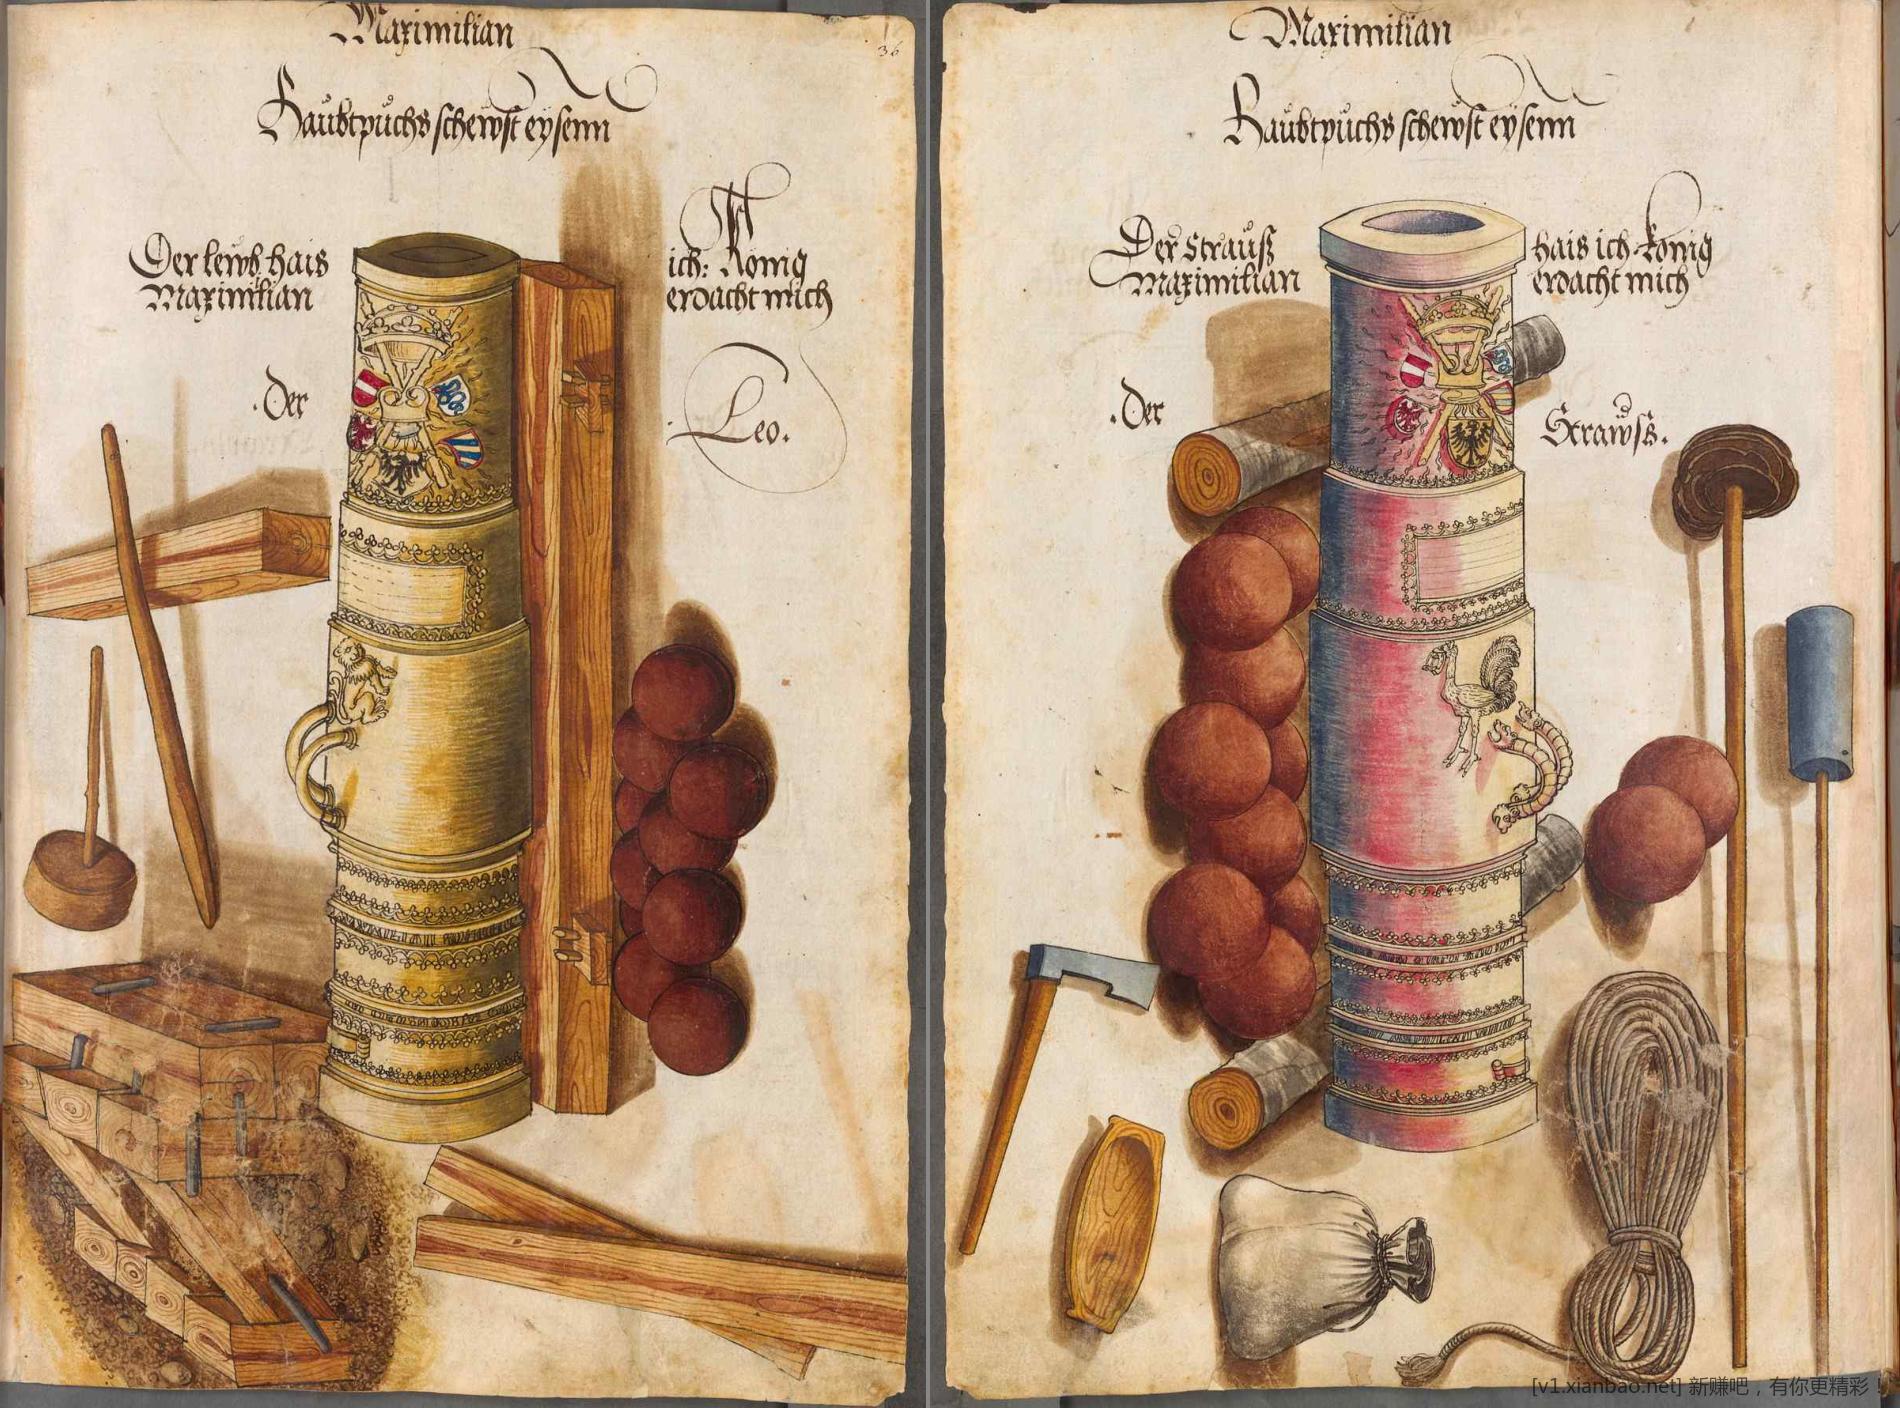 Maximilian
36
Haubtpüchs schewst eysenn
Der lewb hais
Maximilian
ich: König
erdacht mich
.Der
Leo.
Maximilian
Haubtpüchs schewst eysenn
Der Strauß
Maximilian
hais ich König
erdacht mich
.Der
Strawss.
[v1.xianbao.net] 新赚吧，有你更精彩！